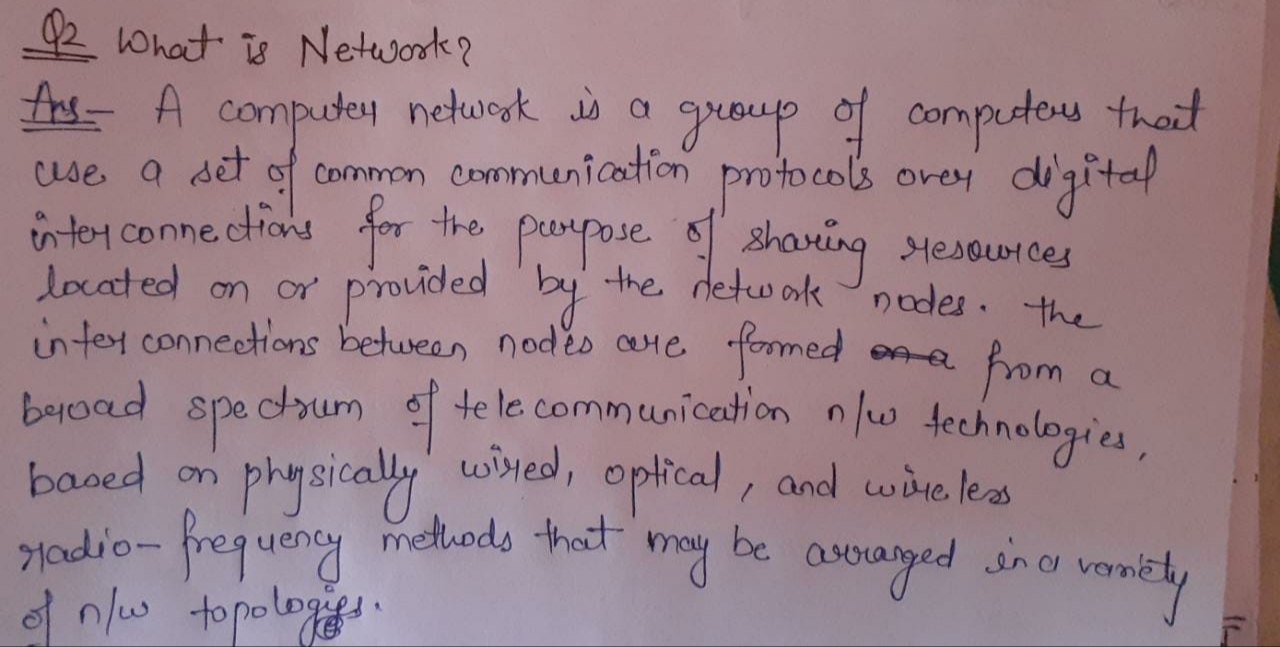 Q2 What is Network?
Ans- A computer network is a group of computers that
use a set of common communication protocols over digital
interconnections for the purpose of sharing resources
located on or provided by the network nodes. The
interconnections between nodes are formed from a
broad spectrum of telecommunication n/w technologies,
based on physically wired, optical, and wireless
radio-frequency methods that may be arranged in a variety
of n/w topologies.